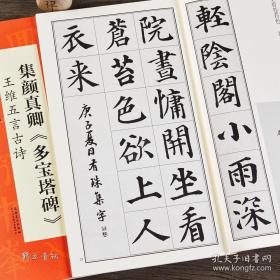 輕陰閣小雨深
院晝慵開坐看
蒼苔色欲上人
衣来
庚子夏日有珠集字
集颜真卿《多宝塔碑》
王维五言古诗